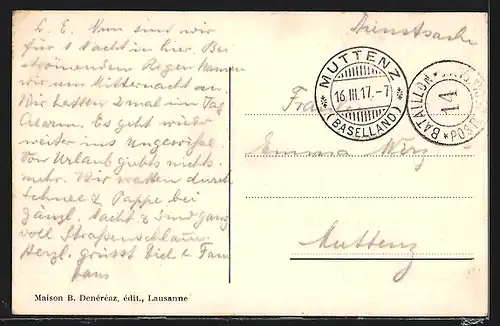 L. E. Nun sind wir
für 1 Nacht in hier. Bei
strömendem Regen kamen
wir um Mitternacht an.
Wir hatten 2 mal im Tag
Alarm. Es geht wieder
weiter ins Ungewisse.
Von Urlaub giebts nichts
mehr. Wir waten durch
Schnee & Pappe bei
Nacht & sind ganz
voll Straßenschlamm.
Herzl. grüsst Dich & Fam
Hans
Maison B. Denéréaz, édit., Lausanne
Dienstsache
MUTTENZ
16.III.17.-7
(BASELLAND)
BATAILLON
Emma
Muttenz